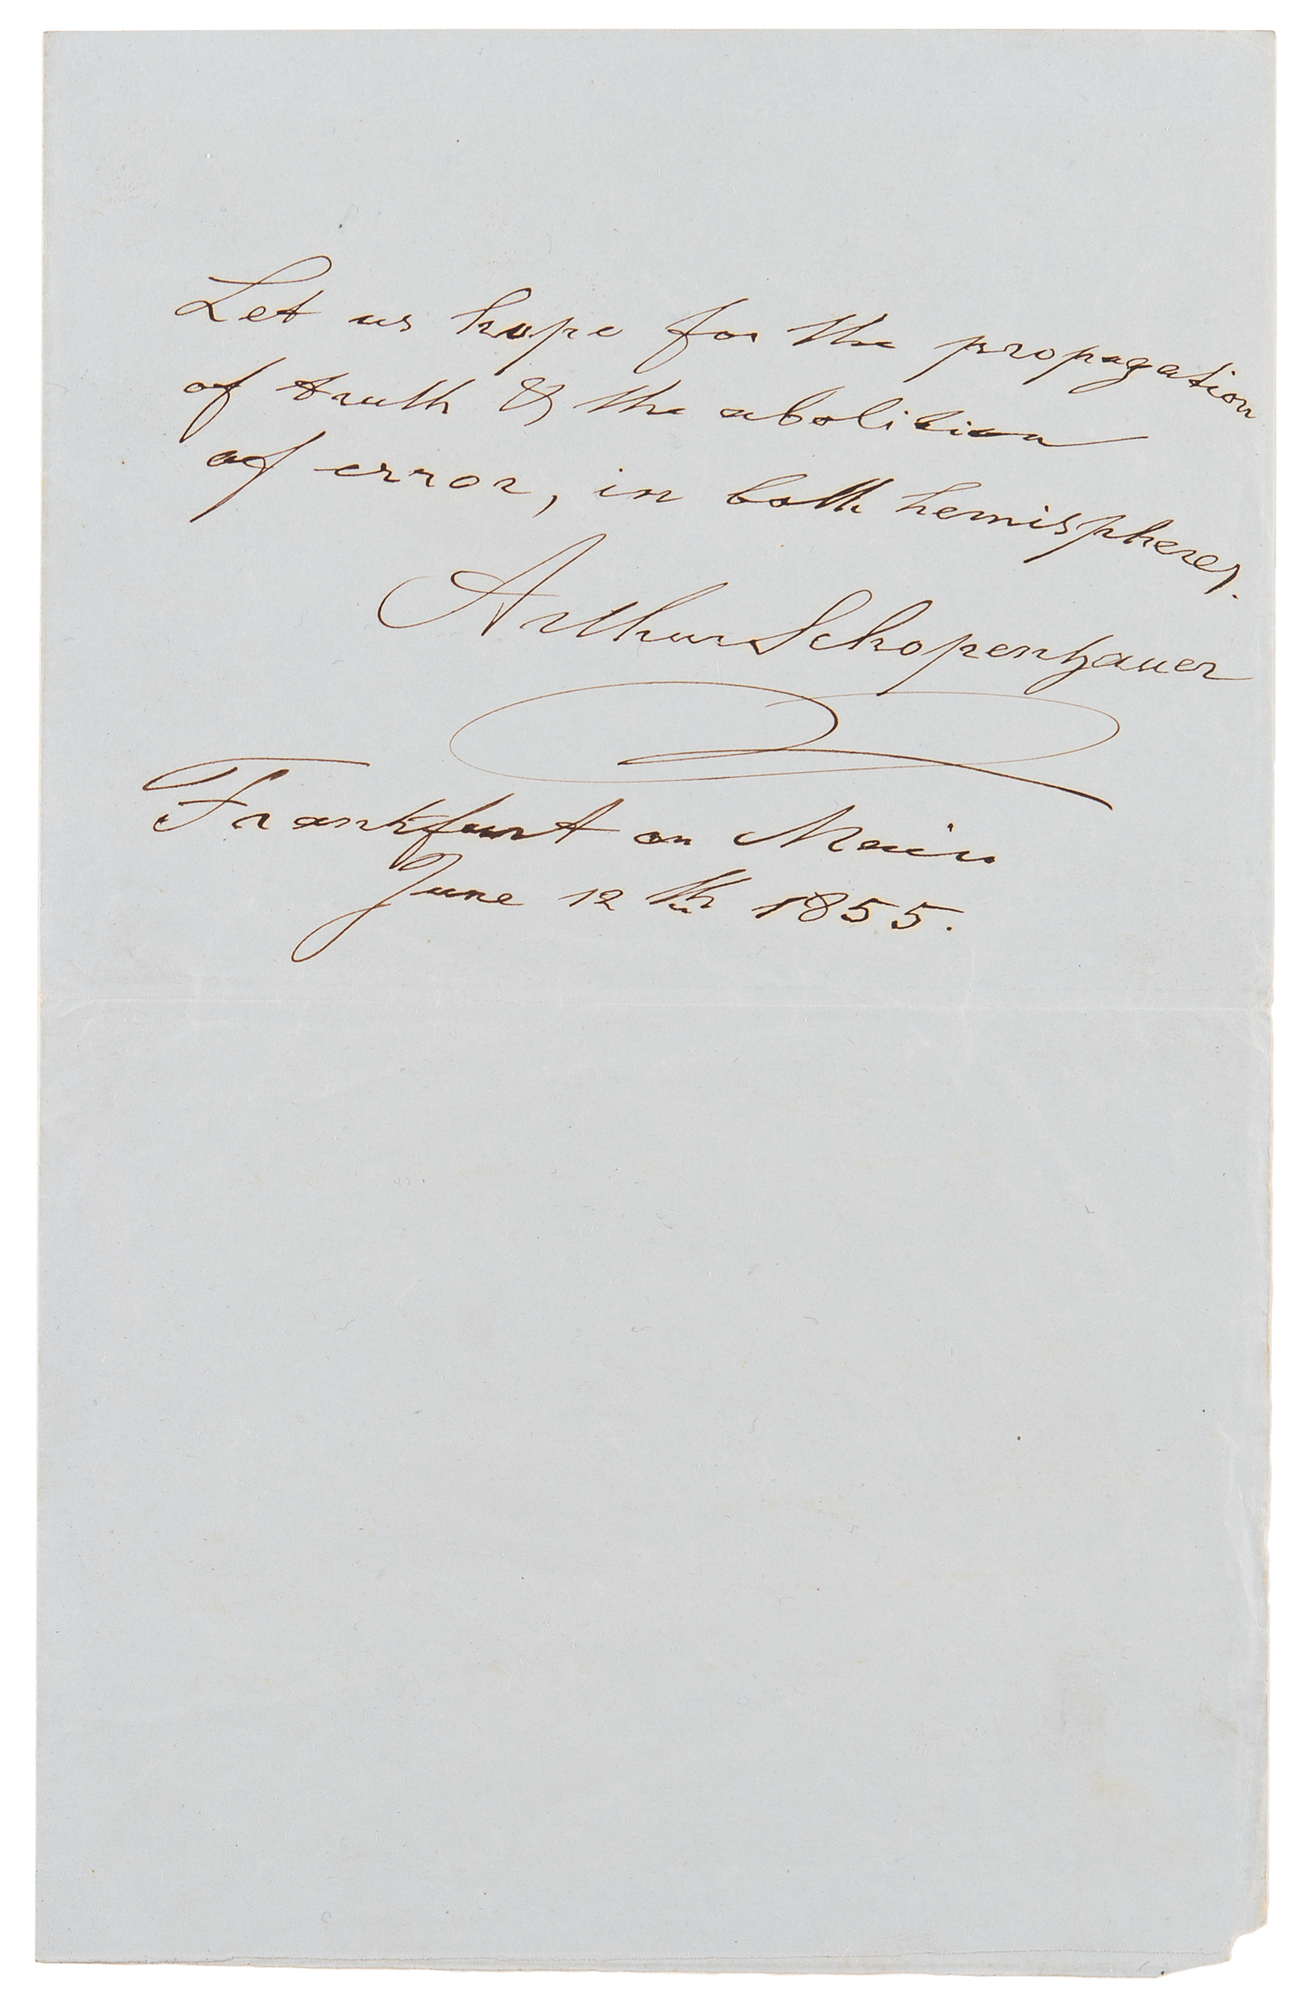 Let us hope for the propagation
of truth & the abolition
of error, in both hemispheres.
Arthur Schopenhauer
Frankfurt on Main
June 12th 1855.